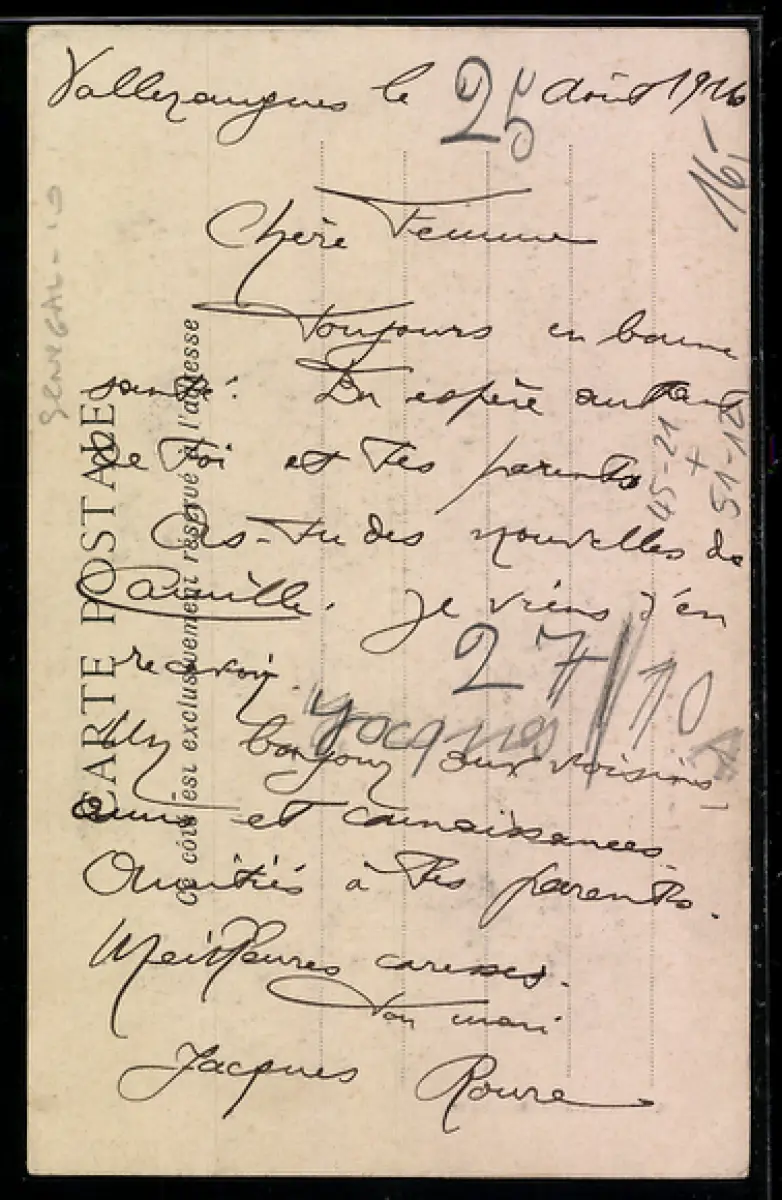 Valleraugues le 25 Août 1916
16,-
Chère Femme
Toujours en bonne
santé. En espère autant
de Toi et Tes parents
As-Tu des nouvelles de
Camille. Je viens d'en
recevoir.
Un bonjour aux voisins
amis et connaissances.
Amitiés à Tes parents.
Meilleures caresses.
Ton mari
Jacques Roure
CARTE POSTALE
Ce côté est exclusivement réservé à l'adresse
SENEGAL
45-21
+
51-12
27/10
Jacques